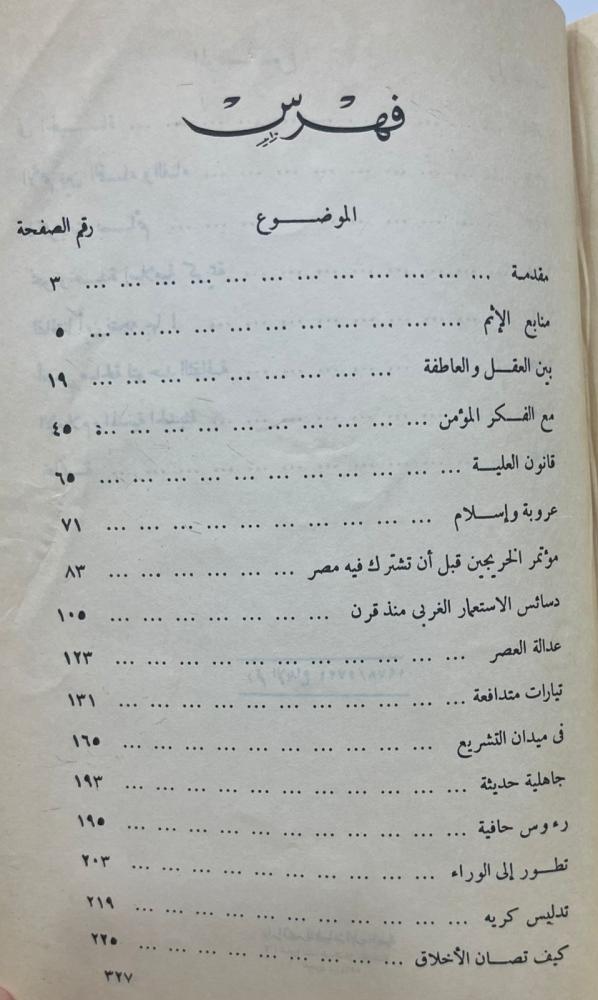 فهرس
الموضوع رقم الصفحة
مقدمة ... ... ... ... ... ... ... ... ... ... ... ... ... ... ٣
منابع الإثم ... ... ... ... ... ... ... ... ... ... ... ... ... ٥
بين العقل والعاطفة ... ... ... ... ... ... ... ... ... ... ... ١٩
مع الفكر المؤمن ... ... ... ... ... ... ... ... ... ... ... ... ٤٥
قانون العلية ... ... ... ... ... ... ... ... ... ... ... ... ... ٦٥
عروبة وإسلام ... ... ... ... ... ... ... ... ... ... ... ... ٧١
مؤتمر الخريجين قبل أن تشترك فيه مصر ... ... ... ... ... ... ... ٨٣
دسائس الاستعمار الغربى منذ قرن ... ... ... ... ... ... ... ... ١٠٥
عدالة العصر ... ... ... ... ... ... ... ... ... ... ... ... ١٢٣
تيارات متدافعة ... ... ... ... ... ... ... ... ... ... ... ... ١٣١
فى ميدان التشريع ... ... ... ... ... ... ... ... ... ... ... ١٦٥
جاهلية حديثة ... ... ... ... ... ... ... ... ... ... ... ... ١٩٣
رءوس حافية ... ... ... ... ... ... ... ... ... ... ... ... ١٩٥
تطور إلى الوراء ... ... ... ... ... ... ... ... ... ... ... ٢٠٣
تدليس كريه ... ... ... ... ... ... ... ... ... ... ... ... ٢١٩
كيف تصان الأخلاق ... ... ... ... ... ... ... ... ... ... ٢٢٥
٣٢٧